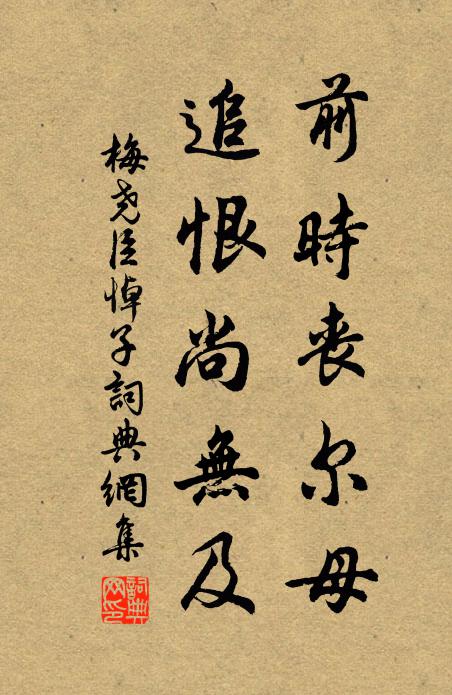 前時喪尔母
追恨尚無及
梅尧臣悼子詞典網集
詞典網印